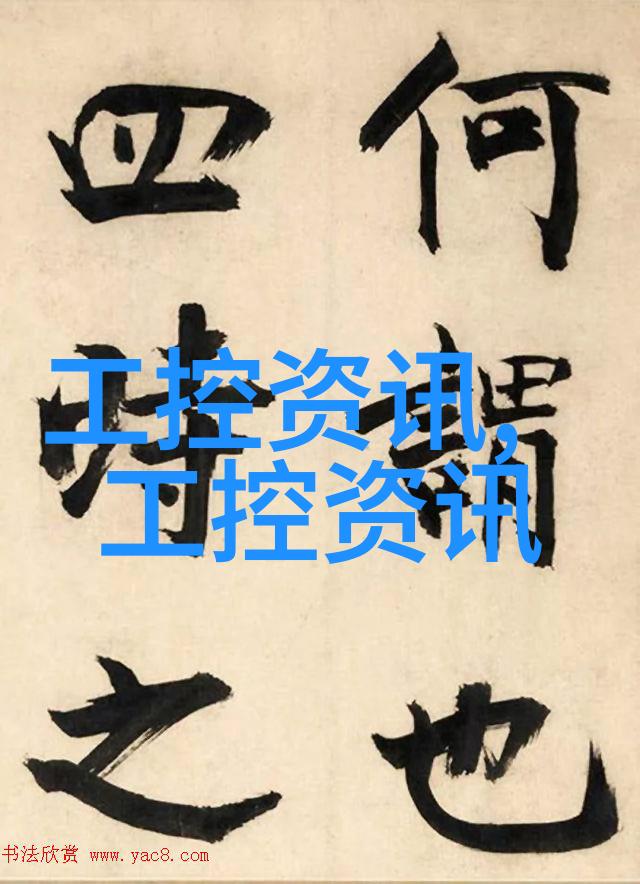 何謂也
四時之
工控资讯,
工控资讯
书法欣赏 www.yac8.com